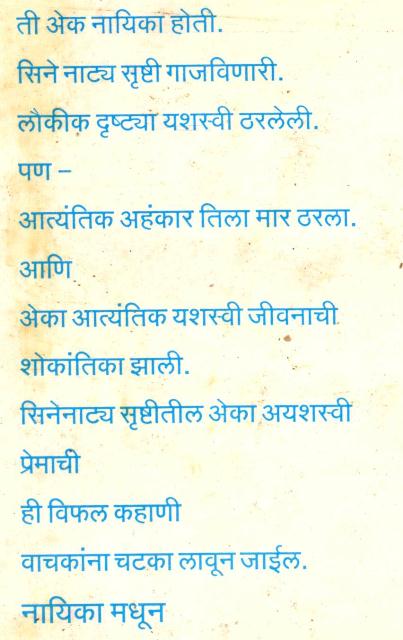 ती अेक नायिका होती.
सिने नाट्य सृष्टी गाजविणारी.
लौकीक दृष्ट्या यशस्वी ठरलेली.
पण –
आत्यंतिक अहंकार तिला मार ठरला.
आणि
अेका आत्यंतिक यशस्वी जीवनाची
शोकांतिका झाली.
सिनेनाट्य सृष्टीतील अेका अयशस्वी
प्रेमाची
ही विफल कहाणी
वाचकांना चटका लावून जाईल.
नायिका मधून